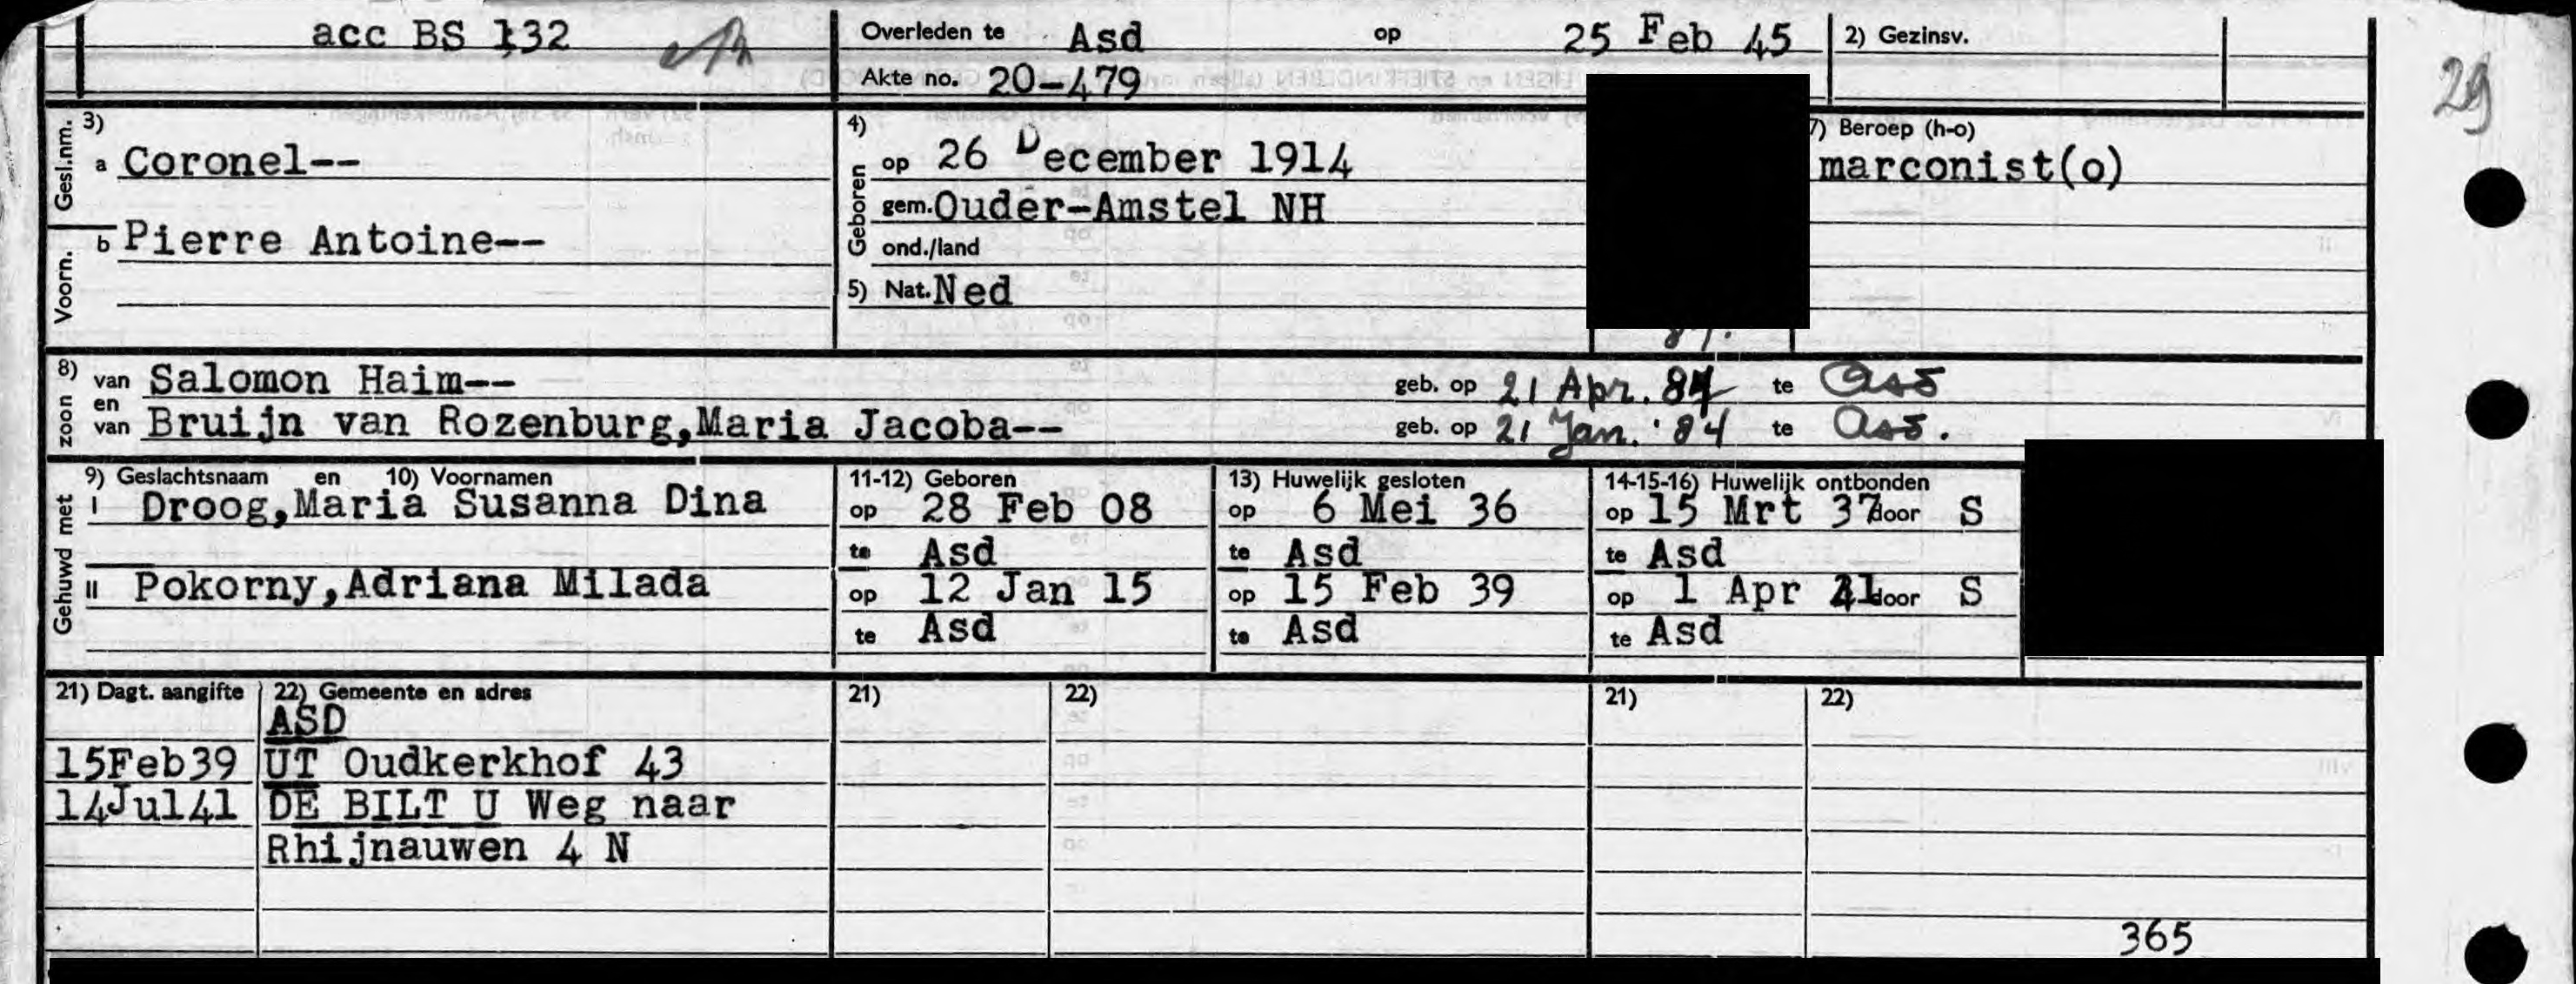 acc BS 132
Overleden te Asd op 25 Feb 45
2) Gezinsv.
Akte no. 20-479
29
Gesl.nm. 3)
a Coronel--
Voorn.
b Pierre Antoine--
Geboren 4)
op 26 December 1914
gem. Ouder-Amstel NH
ond./land
5) Nat. Ned
7) Beroep (h-o)
marconist(o)
8) zoon van Salomon Haim-- geb. op 21 Apr. 84 te Asd
en van Bruijn van Rozenburg, Maria Jacoba-- geb. op 21 Jan. '84 te Asd.
Gehuwd met
9) Geslachtsnaam en 10) Voornamen
11-12) Geboren
13) Huwelijk gesloten
14-15-16) Huwelijk ontbonden
I Droog, Maria Susanna Dina
op 28 Feb 08
op 6 Mei 36
op 15 Mrt 37 door S
te Asd
te Asd
te Asd
II Pokorny, Adriana Milada
op 12 Jan 15
op 15 Feb 39
op 1 Apr 41 door S
te Asd
te Asd
te Asd
21) Dagt. aangifte 22) Gemeente en adres 21) 22) 21) 22)
ASD
15Feb39 UT Oudkerkhof 43
14Jul41 DE BILT U Weg naar
Rhijnauwen 4 N
365